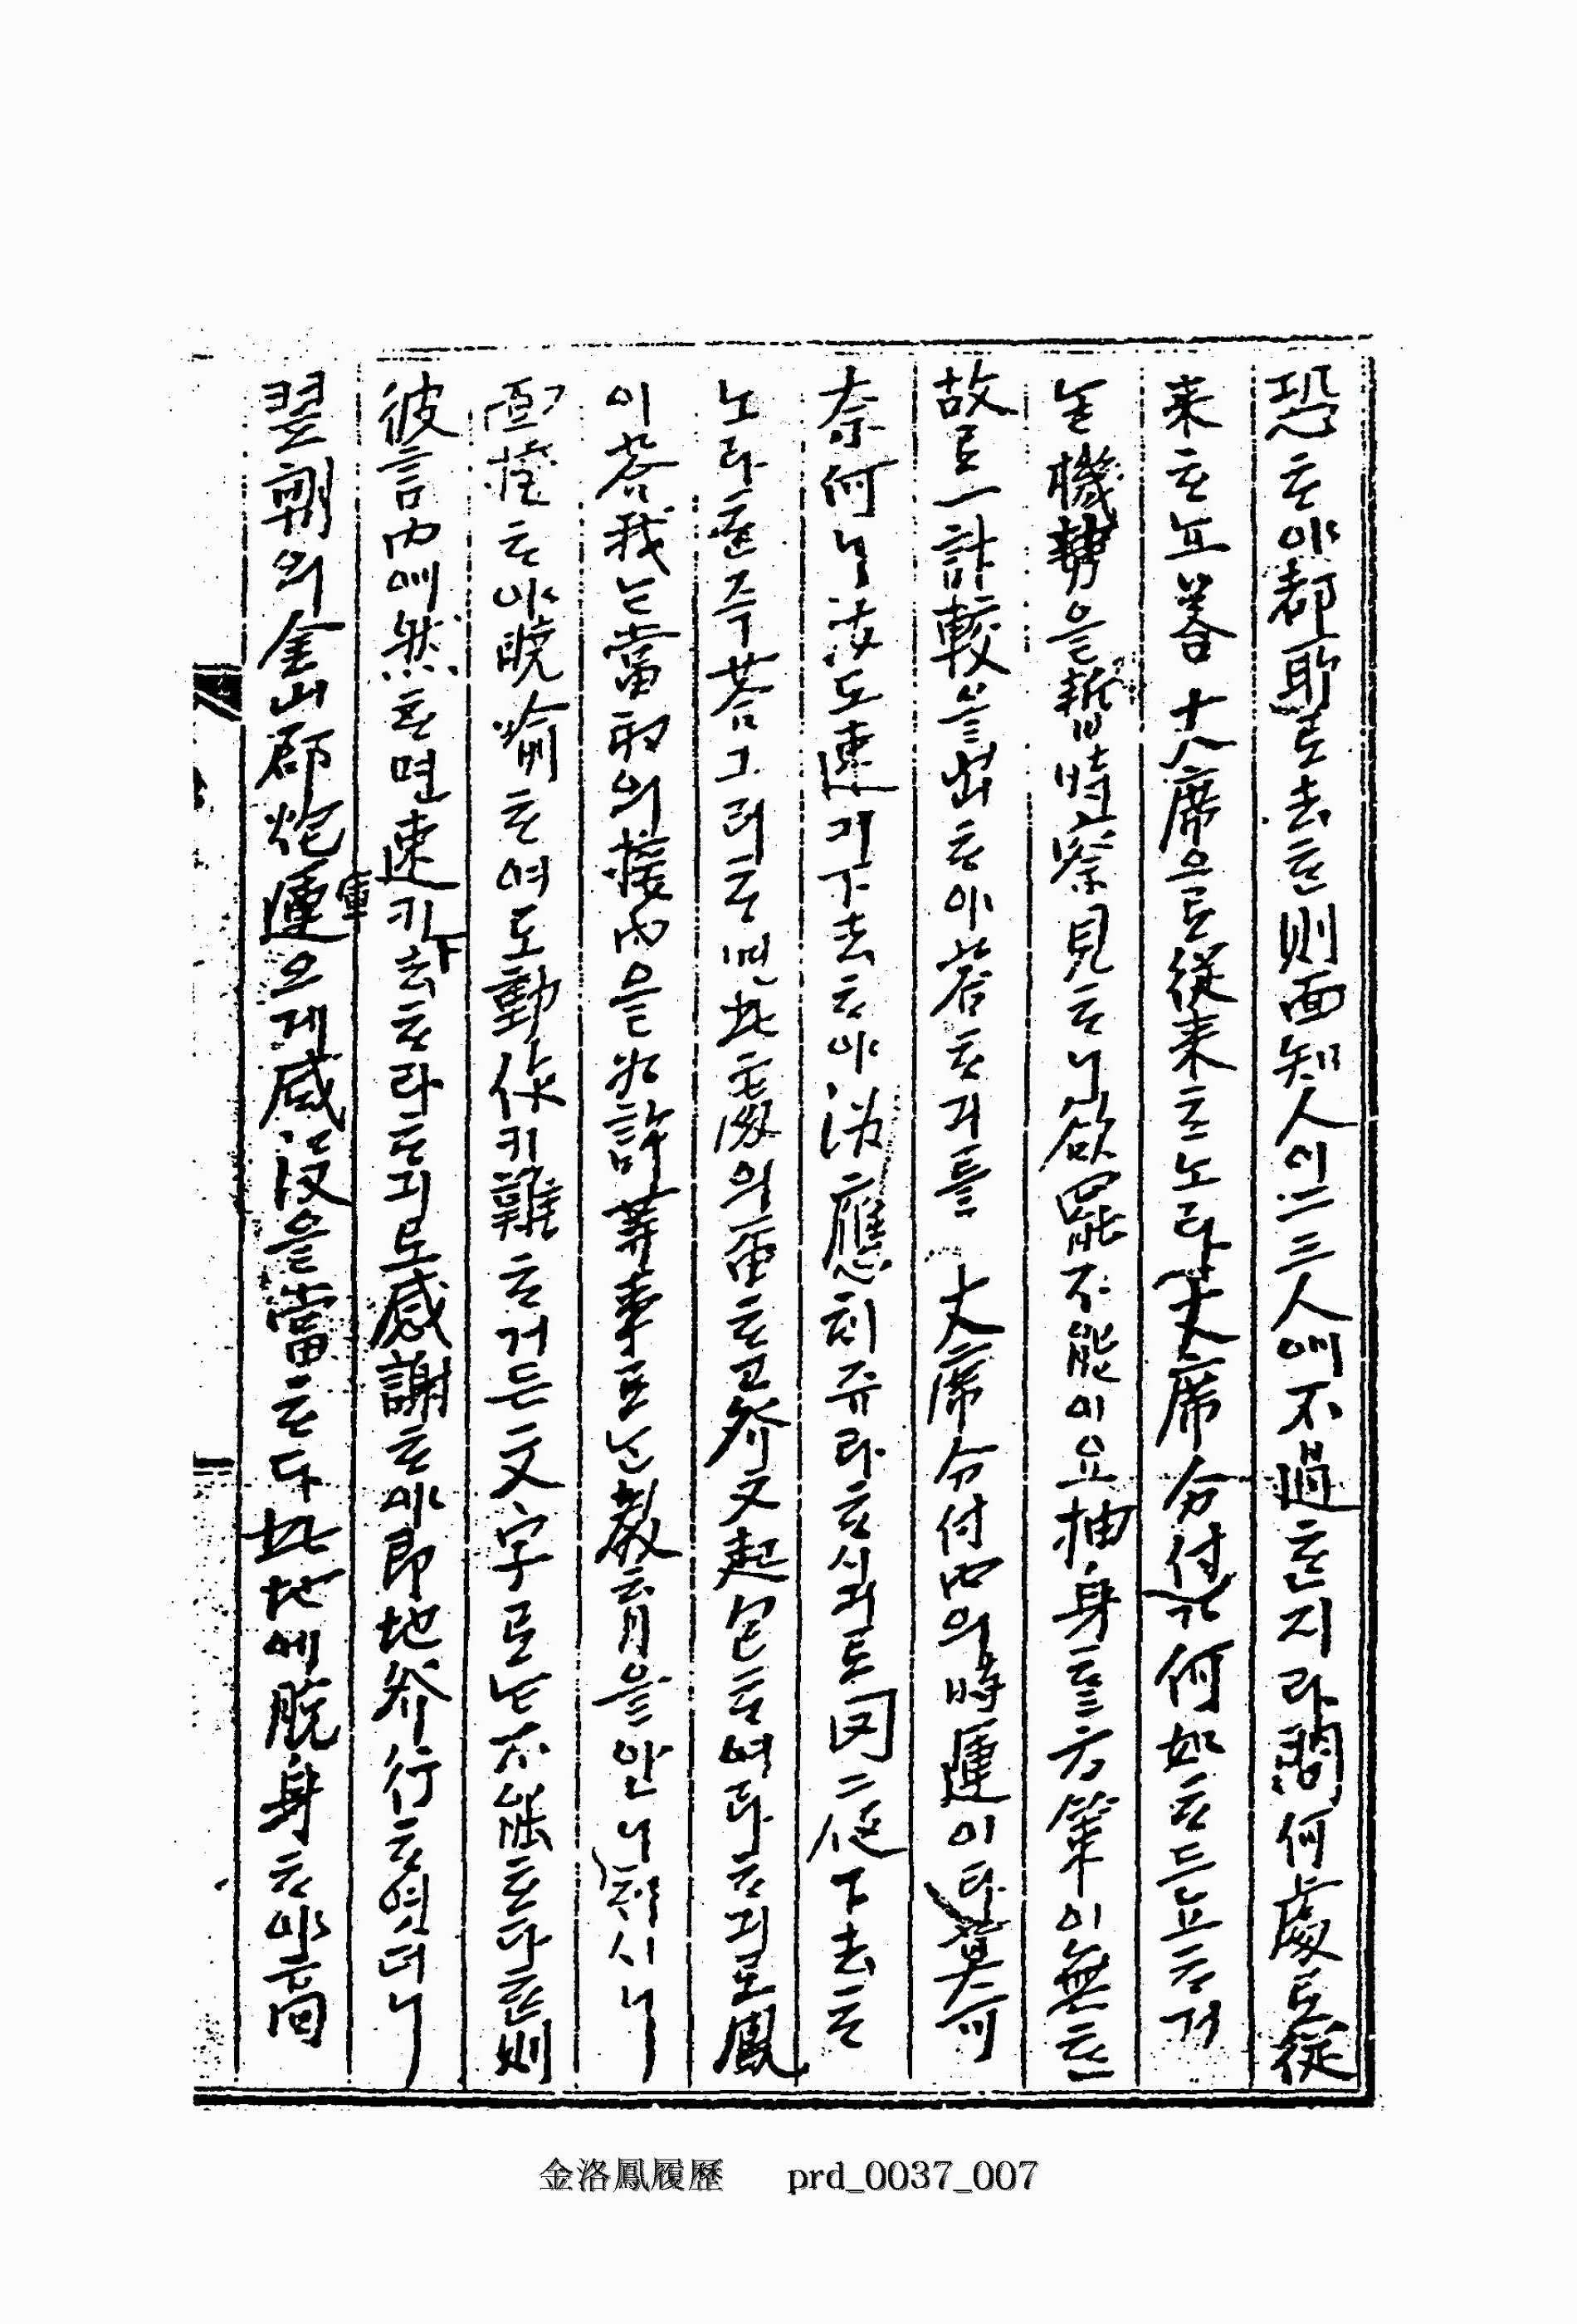 恐ᄒᆞ야都聚로去ᄒᆞᆫ則面知人이二三人에不過ᄒᆞᆫ지라問何處로從
来ᄒᆞ뇨答大席으로從来ᄒᆞ노라大席分付가何如ᄒᆞ드뇨ᄒᆞ거
늘機勢을暫時察見ᄒᆞ니欲罷不能이요抽身ᄒᆞᆯ方策이無ᄒᆞᆫ
故로一計較을出ᄒᆞ야答ᄒᆞ거ᄃᆞᆯ大席分付內의時運이라莫可
奈何니汝도速키下去ᄒᆞ야涉應ᄒᆡ쥬라ᄒᆞ시긔로回二徒下去ᄒᆞ
노라ᄒᆞᆫ즉答그러ᄒᆞ면此處의留ᄒᆞ고發文起包ᄒᆞ여라ᄒᆞ긔로鳳
이答我ᄂᆞᆫ當初의接內을不許ᄒᆞ고ᄂᆞᆫ敎育을안니ᄒᆡ시니
ᄒᆞ야曉喩ᄒᆞ여도動作키難ᄒᆞ거든文字로ᄂᆞᆫ不能ᄒᆞ다ᄒᆞᆫ則
彼言內에然ᄒᆞ면速키下去ᄒᆞ라ᄒᆞ긔로感謝ᄒᆞ야即地發行ᄒᆞ엿더니
翌朝의金山郡炮軍으게咸沒을當ᄒᆞ다此地에脫身ᄒᆞ야回
金洛鳳履歷 prd_0037_007